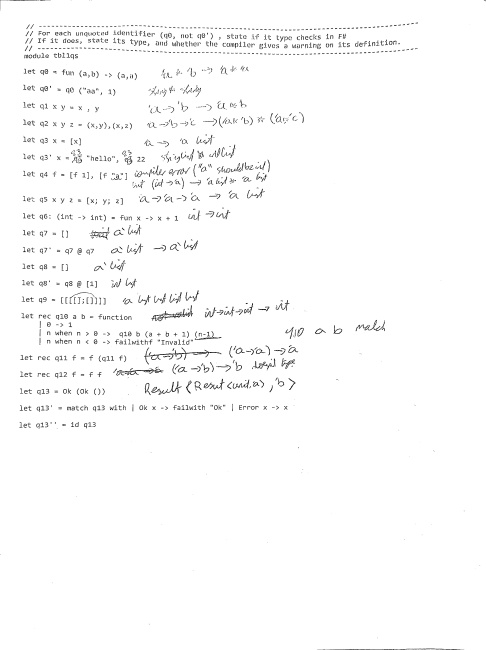 // For each unquoted identifier (q0, not q0') , state if it type checks in F#
// If it does, state its type, and whether the compiler gives a warning on its definition.
module tbl1qs
let q0 = fun (a,b) -> (a,a) 'a * 'b -> 'a * 'a
let q0' = q0 ("aa", 1) string * string
let q1 x y = x , y 'a -> 'b -> 'a * 'b
let q2 x y z = (x,y),(x,z) 'a -> 'b -> 'c -> ('a * 'b) * ('a * 'c)
let q3 x = [x] 'a -> 'a list
let q3' x = q3 "hello", q3 22 string list * int list
let q4 f = [f 1], [f "a"] compiler error ("a" should be int)
int (int -> a) -> a list * a list
let q5 x y z = [x; y; z] 'a -> 'a -> 'a -> 'a list
let q6: (int -> int) = fun x -> x + 1 int -> int
let q7 = [] a' list
let q7' = q7 @ q7 a' list -> a' list
let q8 = [] a' list
let q8' = q8 @ [1] int list
let q9 = [[[[];[]]]] a list list list list
let rec q10 a b = function not valid int -> int -> int -> int
| 0 -> 1
| n when n > 0 -> q10 b (a + b + 1) (n-1) q10 a b match
| n when n < 0 -> failwithf "Invalid"
let rec q11 f = f (q11 f) ('a -> 'b) -> ('a -> 'a) -> 'a
let rec q12 f = f f ('a -> 'b) -> 'b type
let q13 = Ok (Ok ()) Result <Result <unit, a>, 'b>
let q13' = match q13 with | Ok x -> failwith "Ok" | Error x -> x
let q13'' = id q13